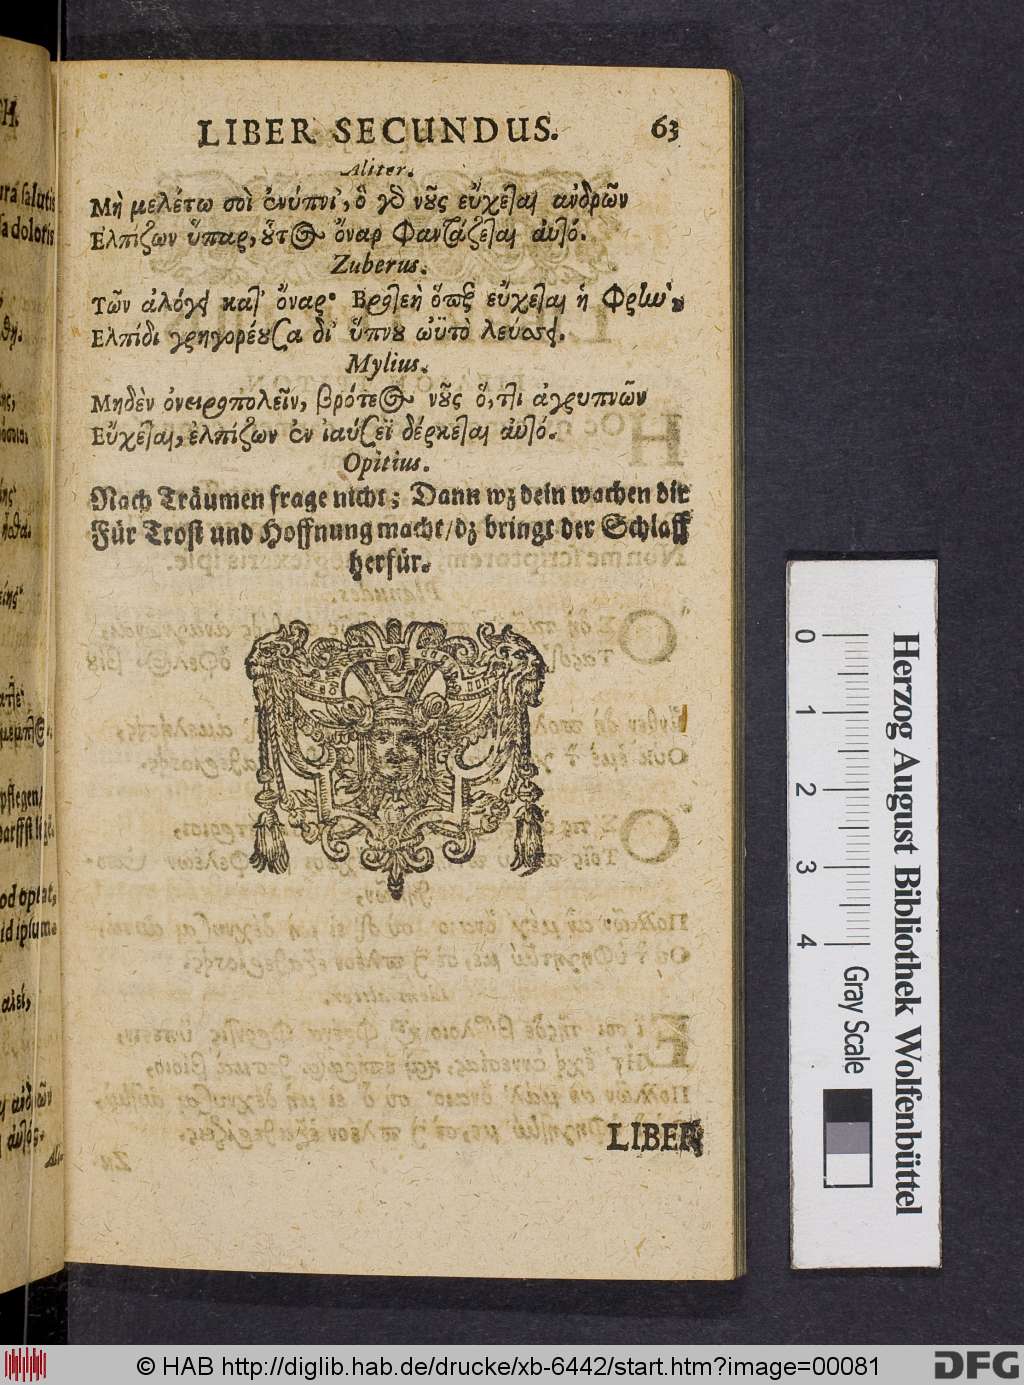 LIBER SECUNDUS. 63
Aliter.
Μὴ μελέτω σοὶ ἐνύπνι', ὃ γδ νοῦς εὔχεται ἀνδρῶν
Ελπίζων ὕπαρ, οὕτος ὄναρ Φαντάζεται αὐτό.
Zuberus.
Τῶν ἀλόγει κατ' ὄναρ· Βροτεὴ ὅπερ εὔχεται ἡ Φρὴν
Ελπίδι γρηγορέουσα δι' ὕπνου ὠϋτὸ λεύσσει.
Mylius.
Μηδὲν ὀνειροπολεῖν, βρότεος νοῦς ὅ, τι ἀγρυπνῶν
Εὔχεται, ἐλπίζων ἐν ἰαύσεϊ δέρκεται αὐτό.
Opitius.
Nach Träumen frage nicht; Dann wz dein wachen dir
Für Trost und Hoffnung macht/ dz bringt der Schlaff
herfür.
LIBER
ura salutis
sa doloris
pflegen/
od optat,
id ipsum.
αἰεί,
0 1 2 3 4
Gray Scale
Herzog August Bibliothek Wolfenbüttel
© HAB http://diglib.hab.de/drucke/xb-6442/start.htm?image=00081
DFG